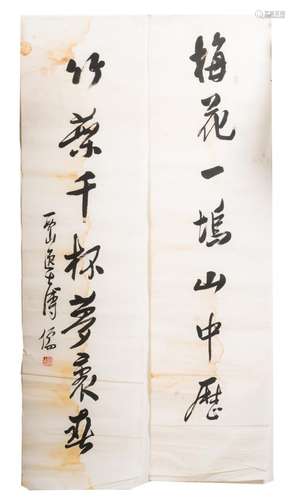 梅花一塢山中歷
竹葉千杯夢裏春
西山逸士溥儒